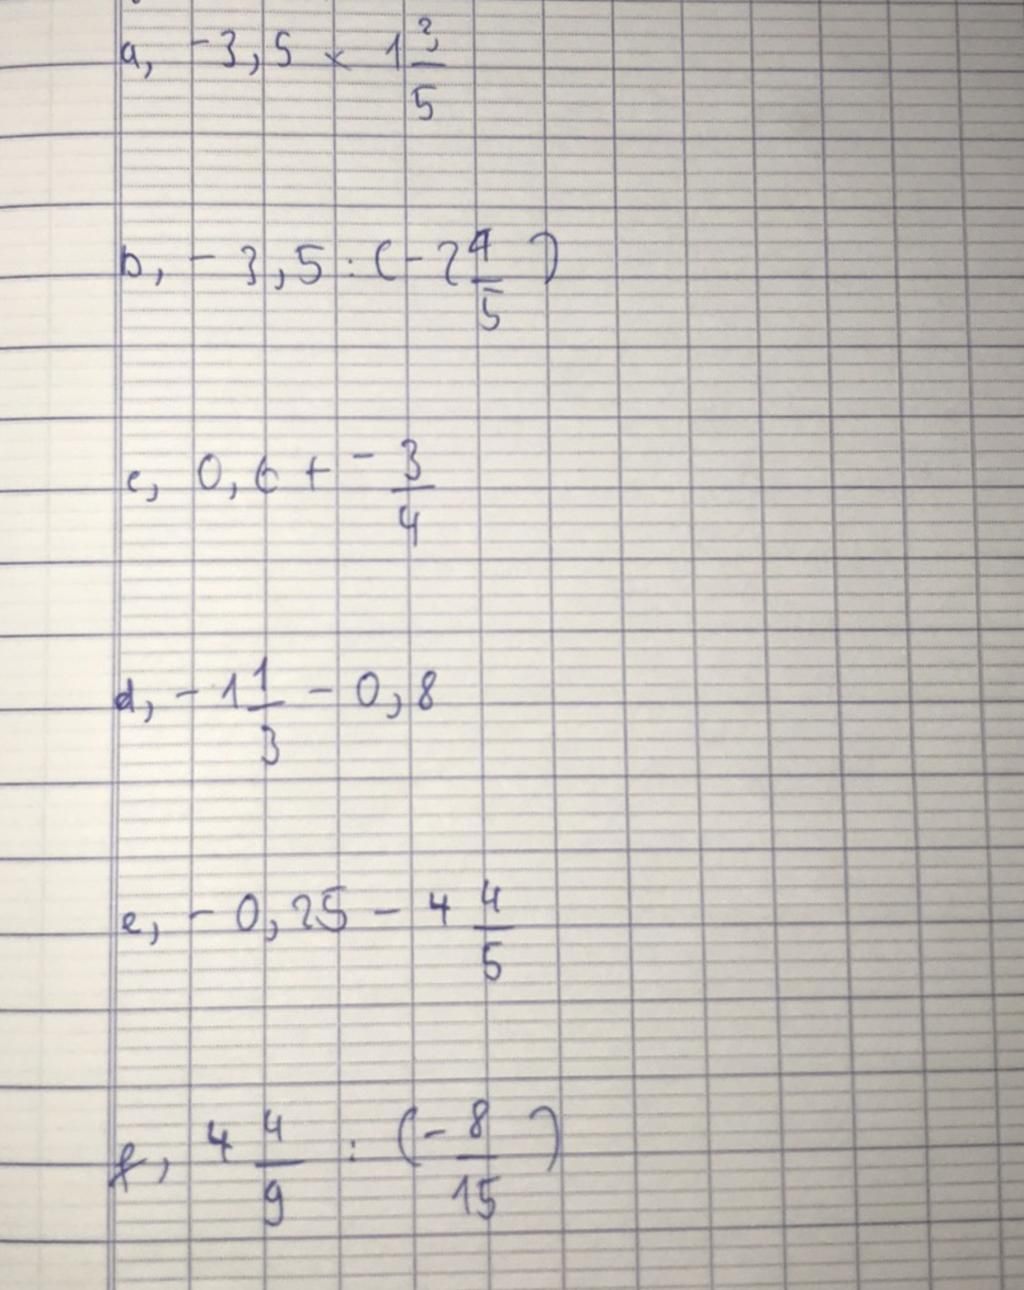 a, -3,5 × 1 3/5
b, -3,5 : (-2 4/5)
c, 0,6 + -3/4
d, -1 1/3 - 0,8
e, -0,25 - 4 4/5
f, 4 4/9 : (-8/15)